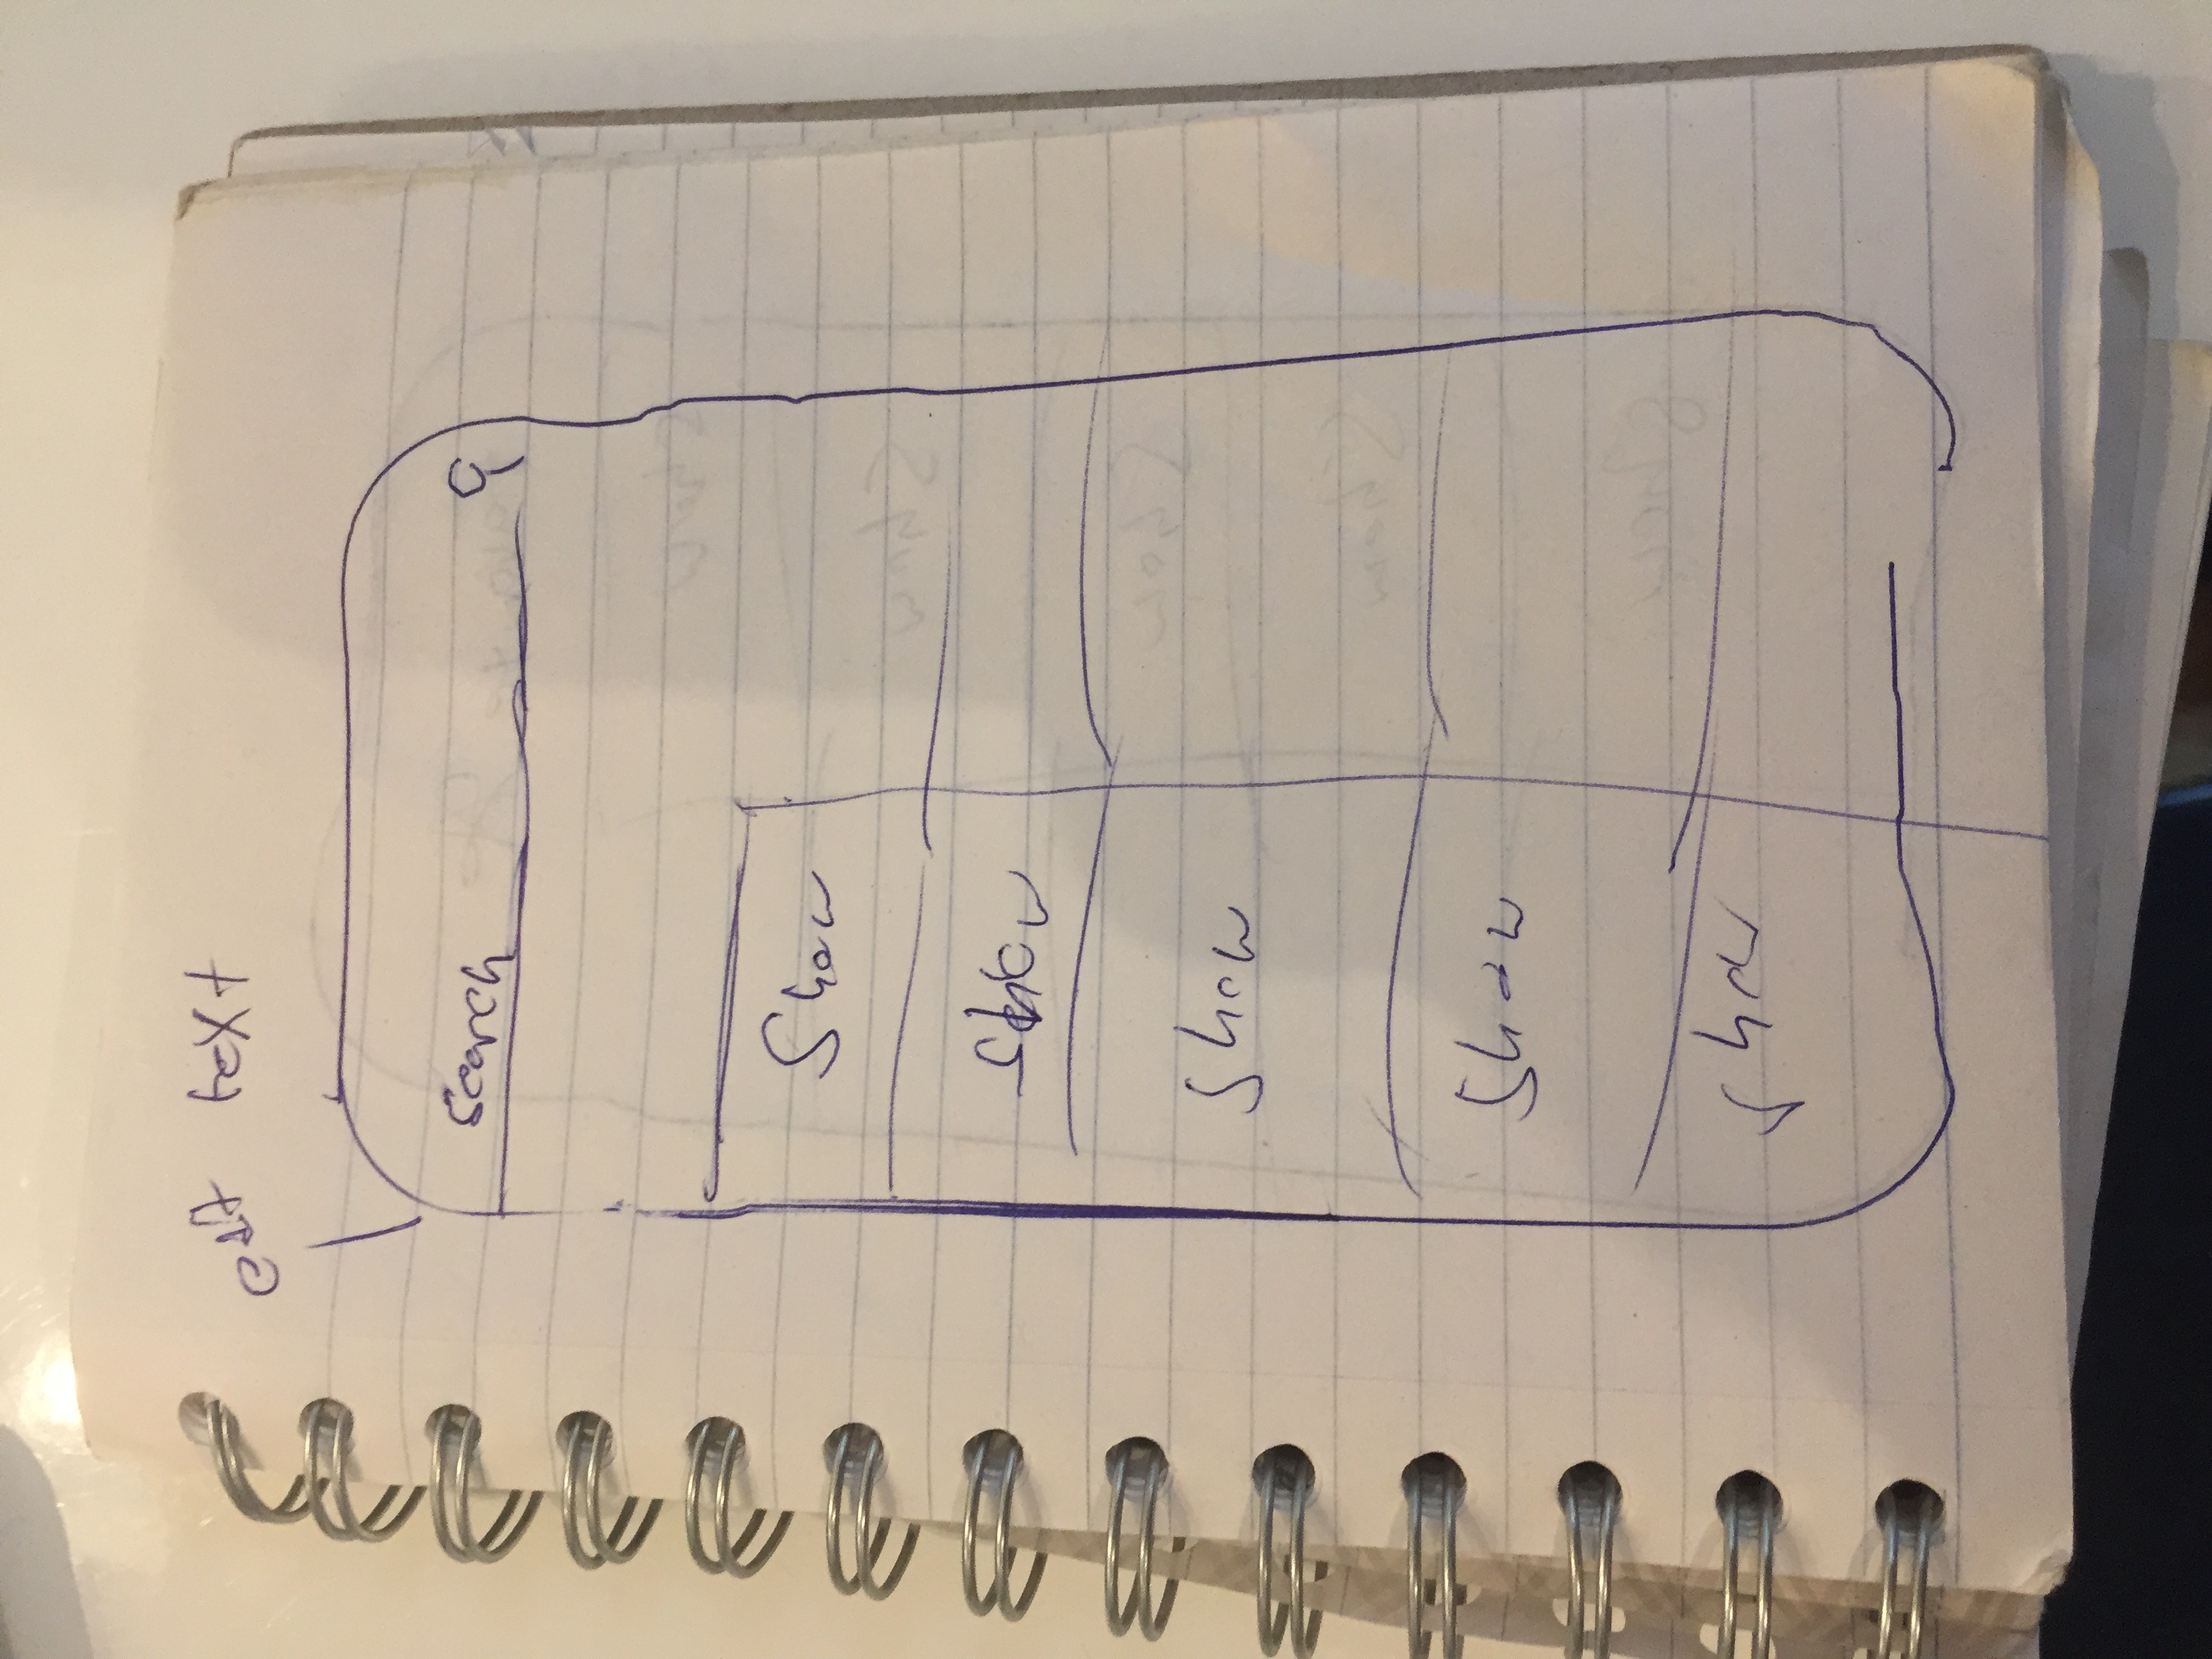 edit text
search
Show
Show
Show
Show
Show